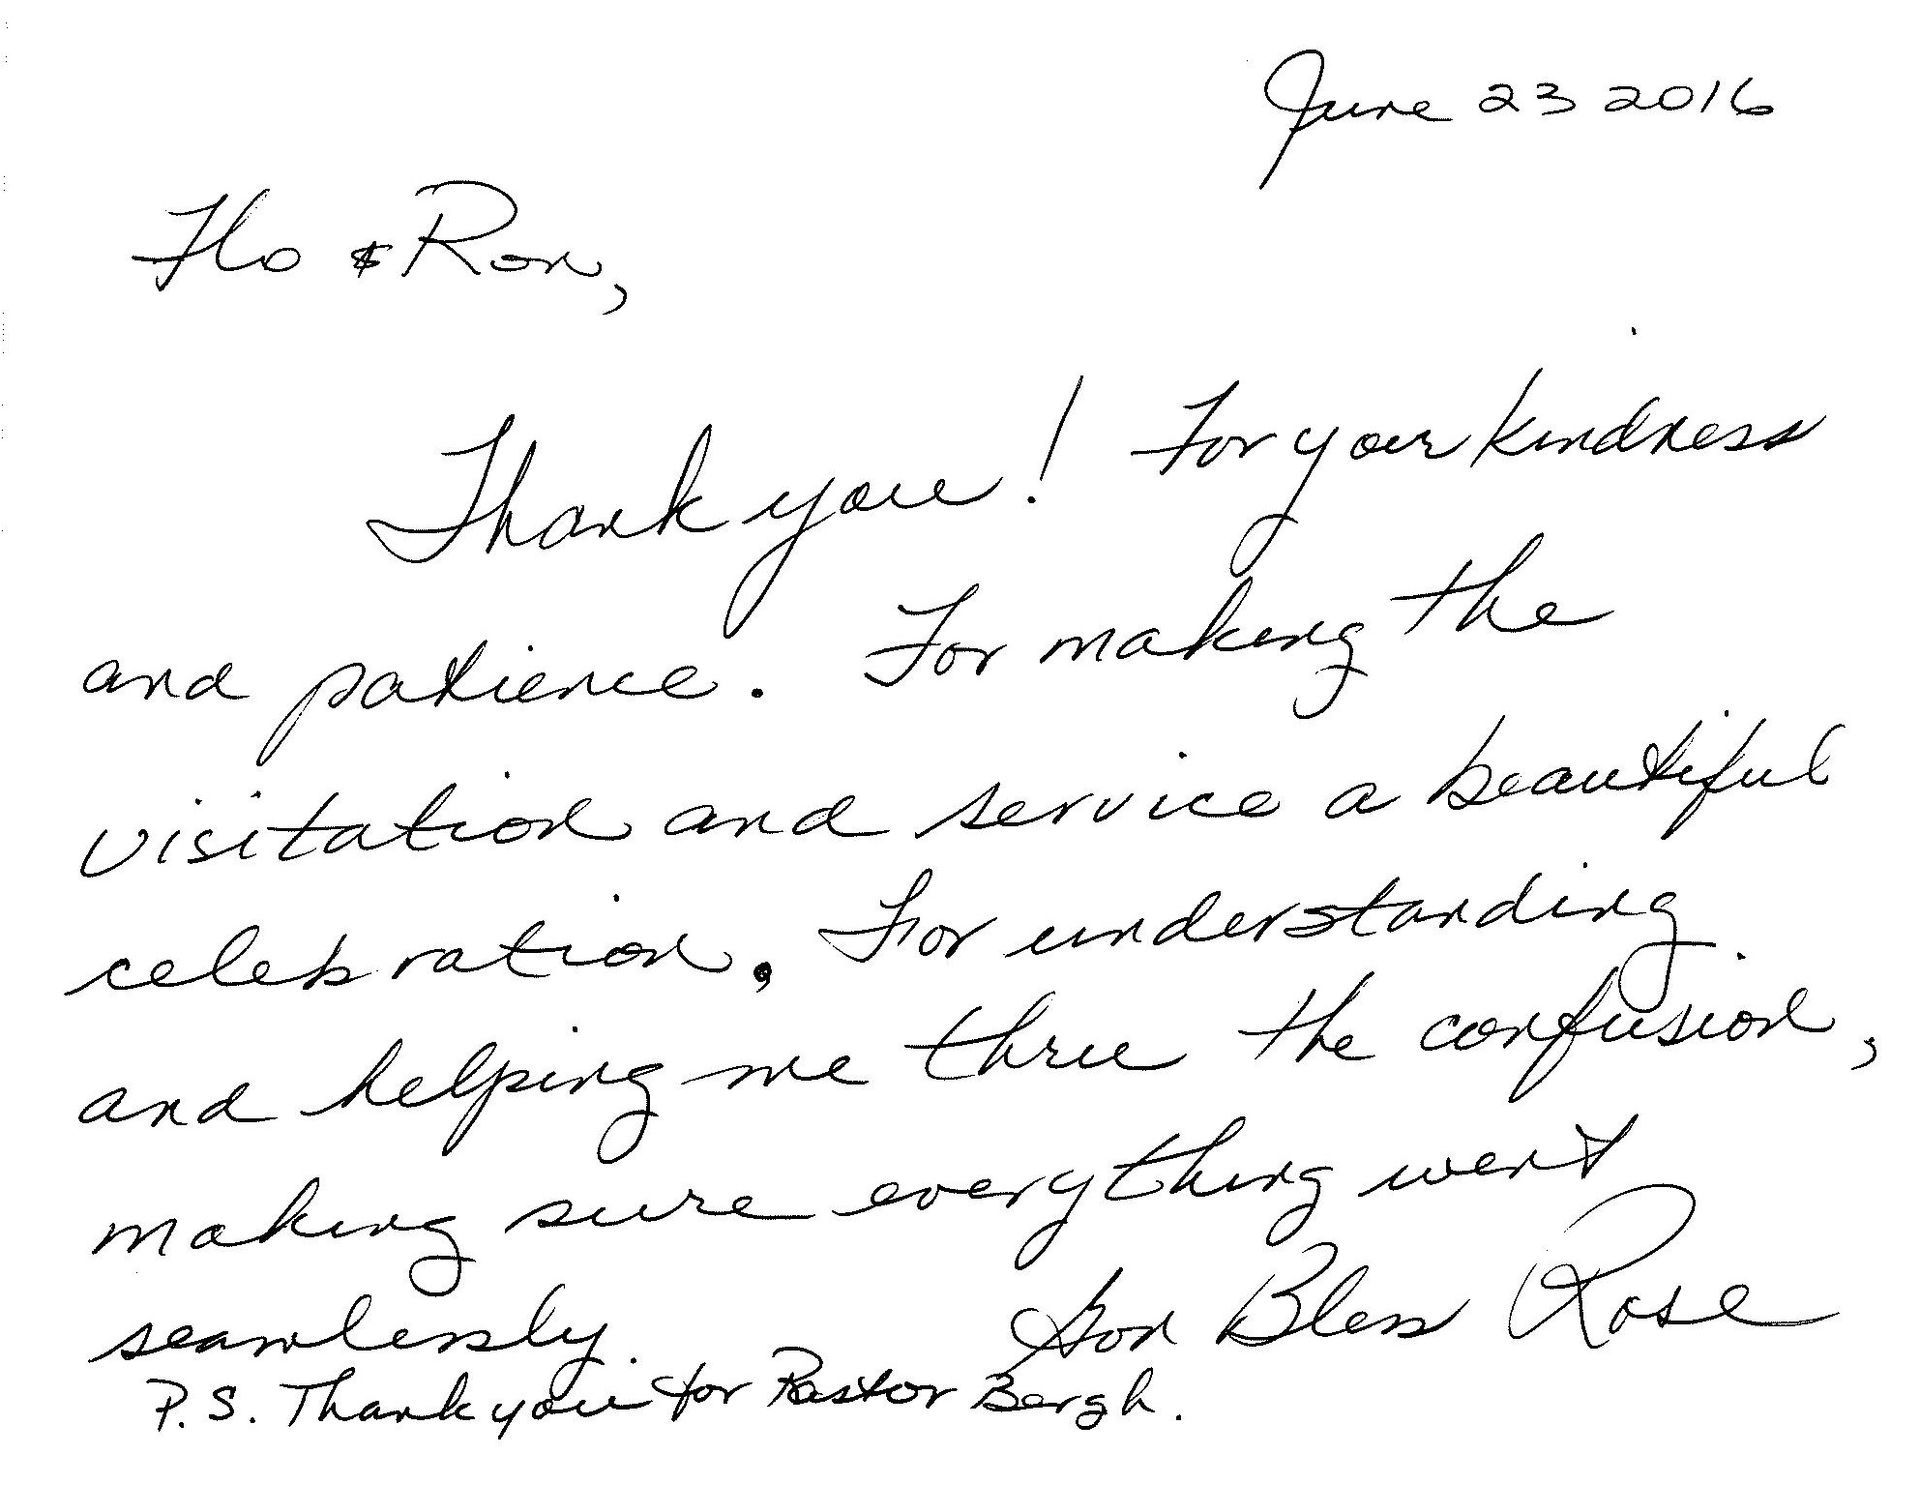 June 23 2016
Flo & Ron,
Thank you! For your kindness
and patience. For making the
visitation and service a beautiful
celebration. For understanding
and helping me three the confusion,
making sure everything went
seamlessly. God Bless Rose
P.S. Thank you for Pastor Bergh.